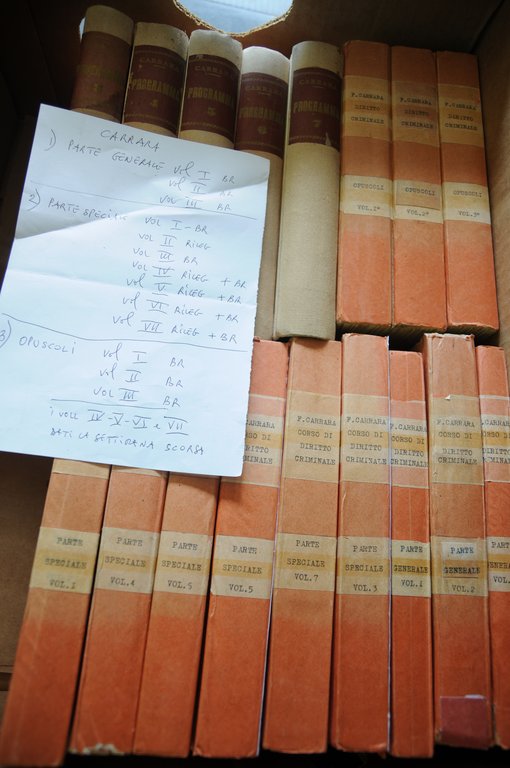 CARRARA
1) PARTE GENERALE vol I BR
vol II BR
vol III BR
2) PARTE SPECIALE vol I - BR
vol II RILEG
vol III BR
vol IV RILEG + BR
vol V RILEG + BR
vol VI RILEG + BR
vol VII RILEG + BR
3) OPUSCOLI vol I BR
vol II BR
vol III BR
I VOLL IV-V-VI e VII
DATI LA SETTIMANA SCORSA
1
4
CARRARA
PROGRAMMA
5
CARRARA
PROGRAMMA
6
CARRARA
PROGRAMMA
7
F. CARRARA
DIRITTO
CRIMINALE
OPUSCOLI
VOL.1°
F. CARRARA
DIRITTO
CRIMINALE
OPUSCOLI
VOL.2°
F. CARRARA
DIRITTO
CRIMINALE
OPUSCOLI
VOL.3°
PARTE
SPECIALE
VOL.1
PARTE
SPECIALE
VOL.4
PARTE
SPECIALE
VOL.5
CARRARA
CORSO DI
DIRITTO
CRIMINALE
PARTE
SPECIALE
VOL.5
F. CARRARA
CORSO DI
DIRITTO
CRIMINALE
PARTE
SPECIALE
VOL.7
F. CARRARA
CORSO DI
DIRITTO
CRIMINALE
PARTE
SPECIALE
VOL.3
F. CARRARA
CORSO DI
DIRITTO
CRIMINALE
PARTE
GENERALE
VOL.1
F. CARRARA
CORSO DI
DIRITTO
CRIMINALE
PARTE
GENERALE
VOL.2